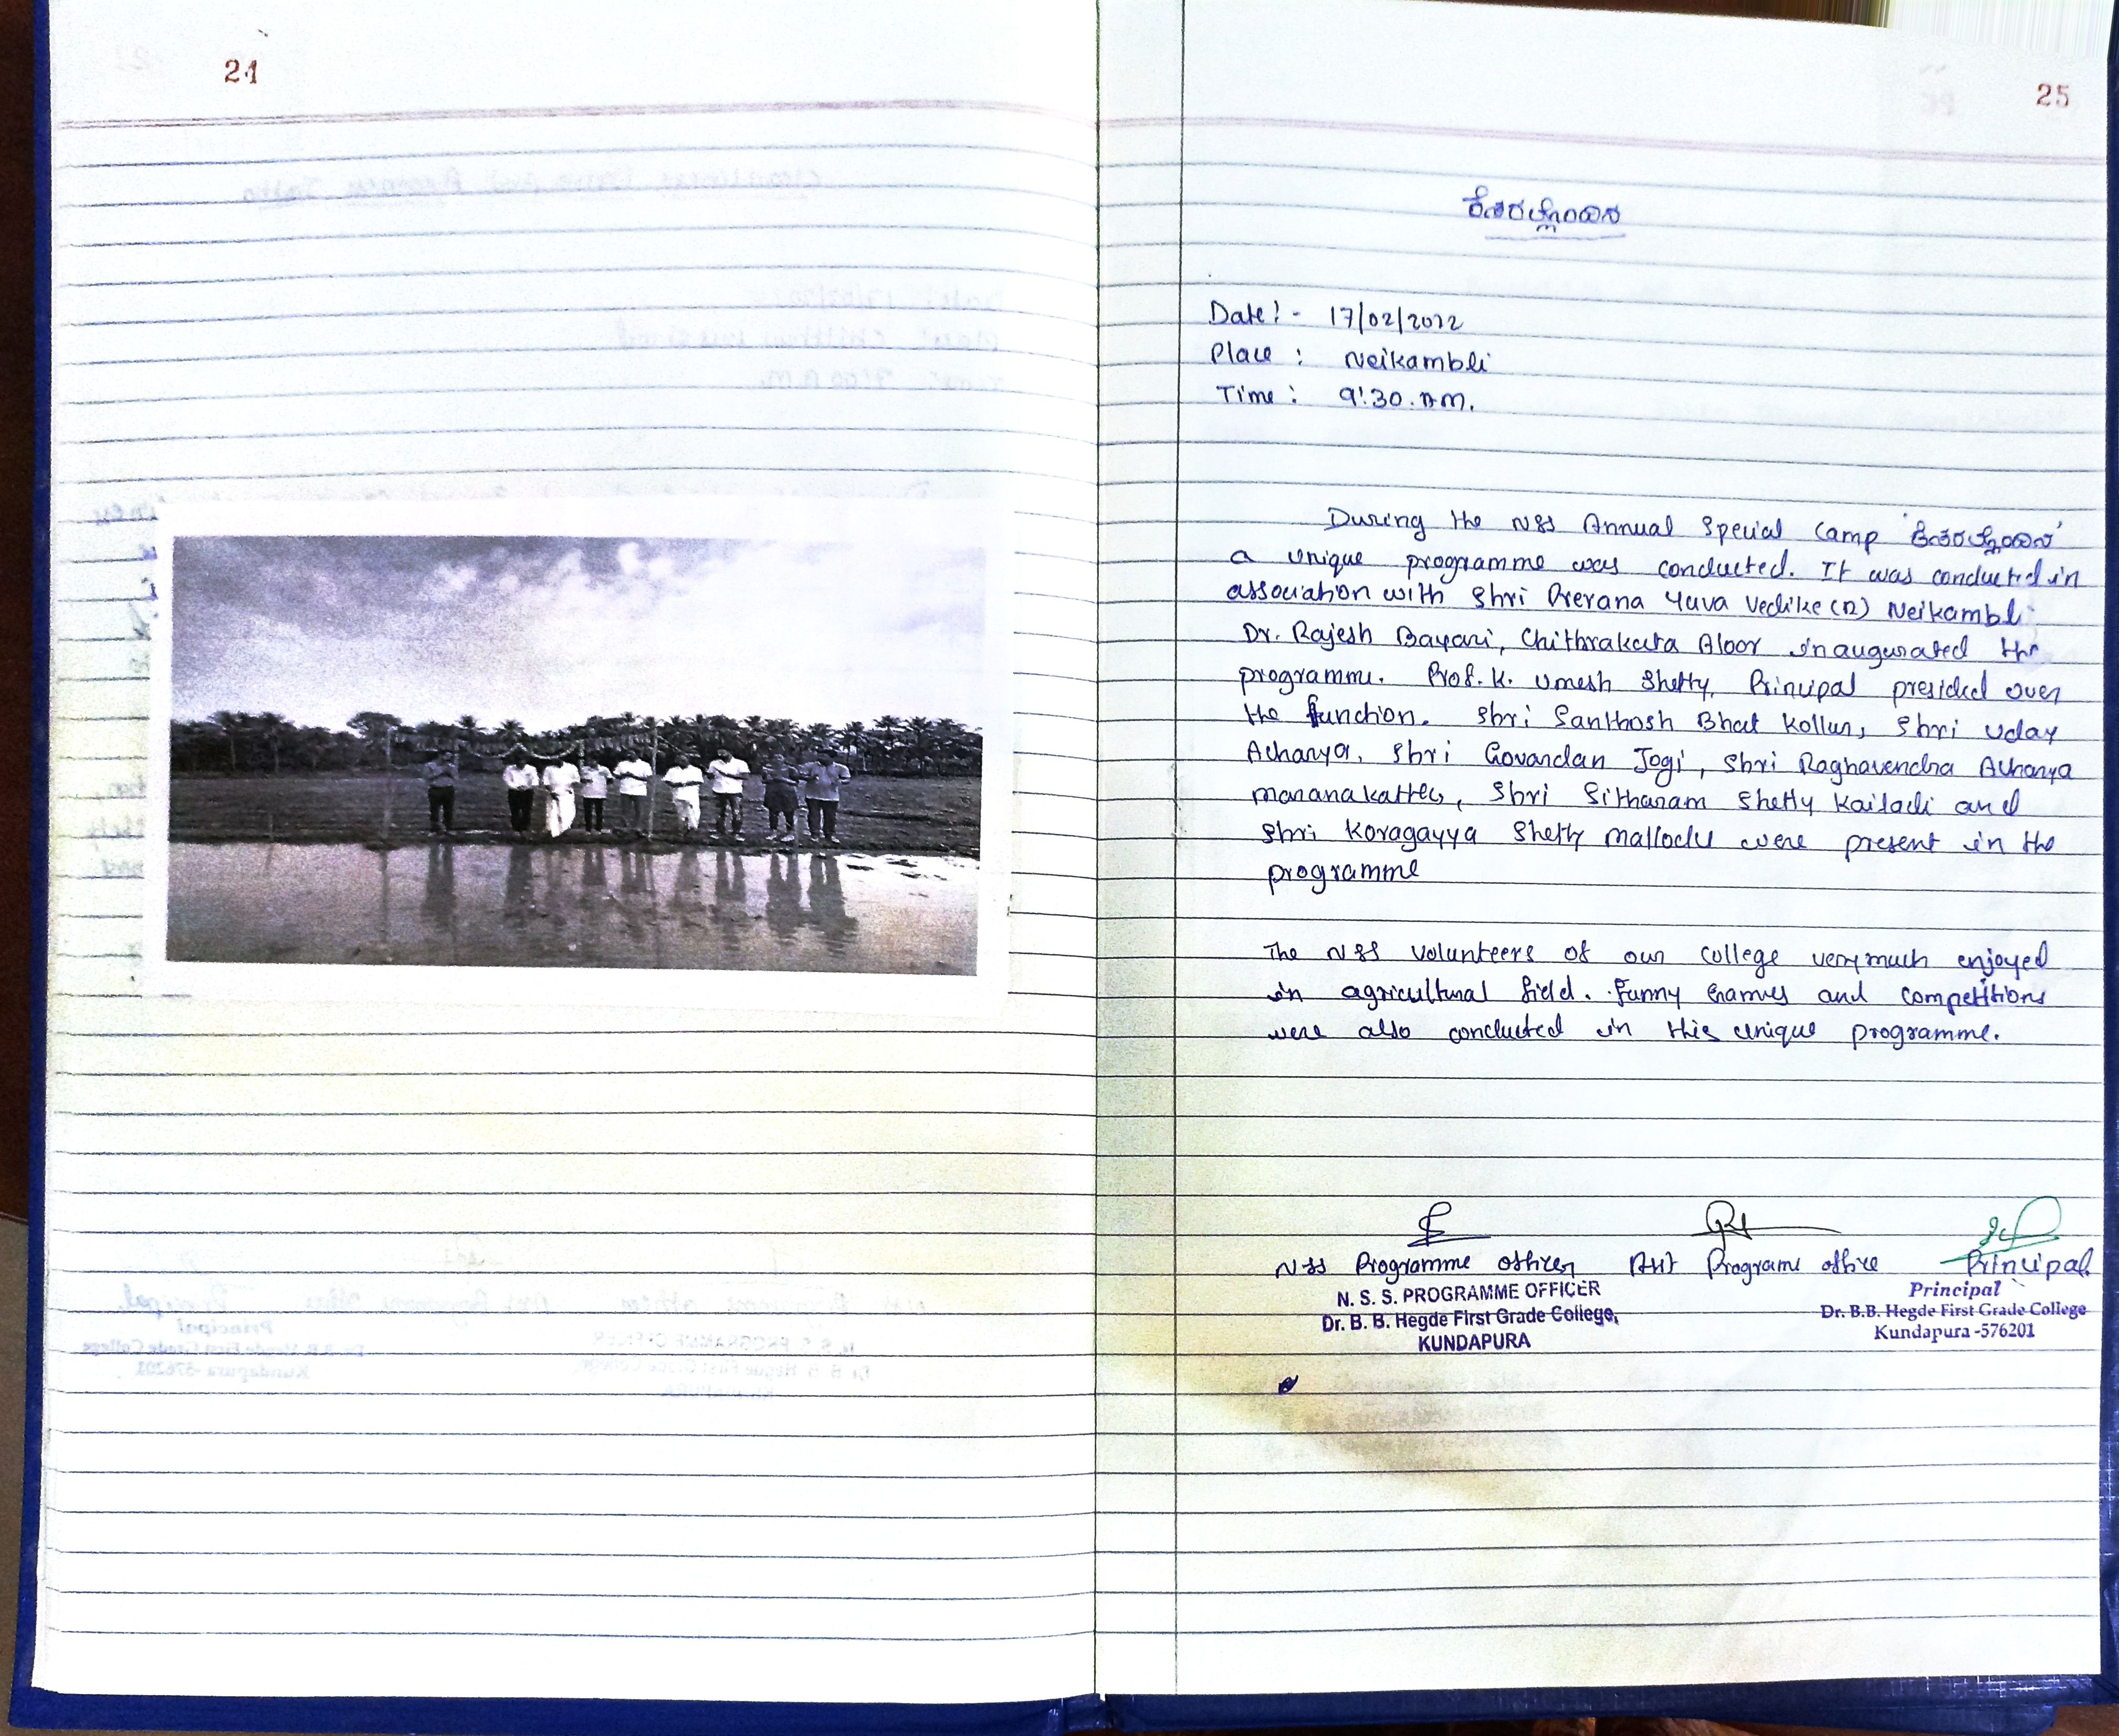 24
25
ಕೆಸರಲ್ಲೊಂದಿನ
Date:- 17/02/2022
Place : Neikambli
Time : 9:30.AM.
During the NSS Annual Special Camp 'ಕೆಸರಲ್ಲೊಂದಿನ'
a unique programme was conducted. It was conducted in
association with Shri Prerana Yuva Vedike (R) Neikambli
Dr. Rajesh Bayari, Chithrakuta Aloor inaugurated the
programme. Prof. K. Umesh Shetty, Principal presided over
the function. Shri Santhosh Bhat Kollur, Shri Uday
Acharya, Shri Govardan Jogi, Shri Raghavendra Acharya
Maranakatte, Shri Sitharam Shetty Kailadi and
Shri Koragayya Shetty Mallodu were present in the
programme
The NSS volunteers of our college very much enjoyed
in agricultural field. Funny Games and competitions
were also conducted in this unique programme.
NSS Programme officer Asst Programe office Principal
N. S. S. PROGRAMME OFFICER
Dr. B. B. Hegde First Grade College,
KUNDAPURA
Principal
Dr. B.B. Hegde First Grade College
Kundapura -576201